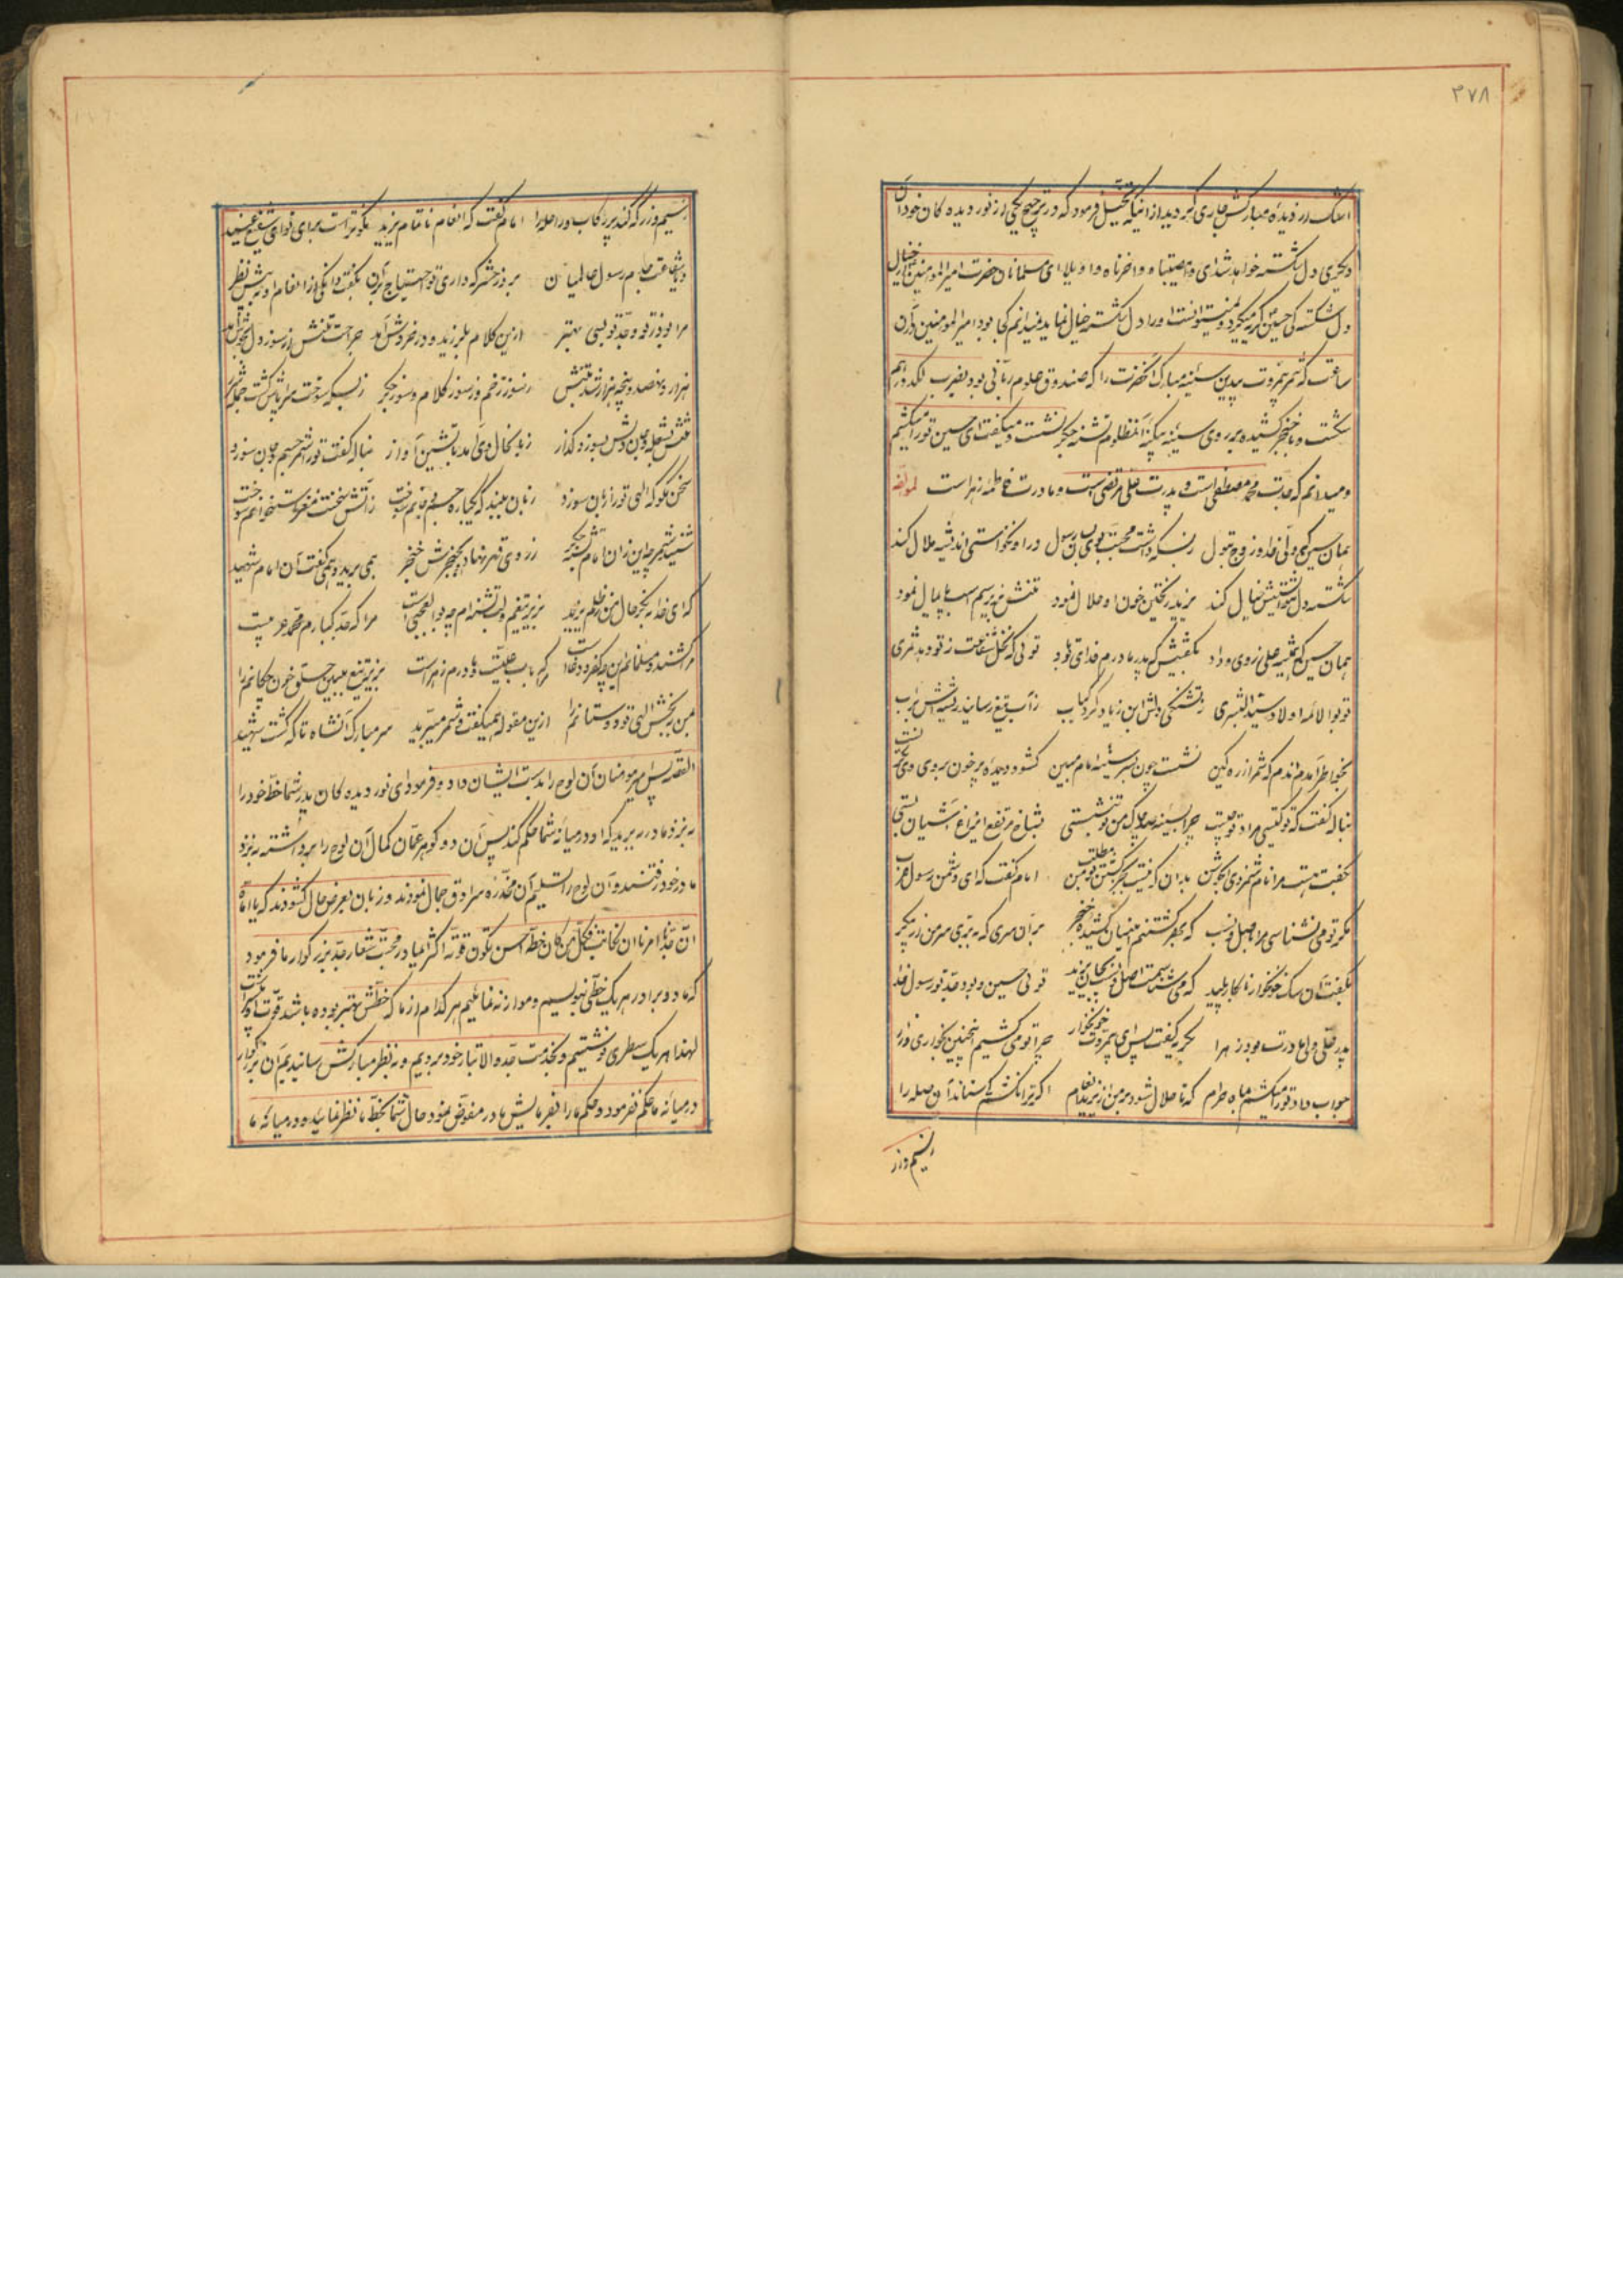 ۳۷۸
اشک از دیده مبارکش جاری گردید از اینکه تخیل فرمود که در ترجیح یکی از نور دیده کان خود آن
دیگری دل شکسته خواهد شد ای وامصیبتا و واحزناه و واویلا ای مسلمانان حضرت امیرالمومنین خیال
دل شکستگی حسین که میکرد و نمیتوانست او را دل شکسته خیال نماید نمیدانم کجا بود امیرالمومنین در آن
ساعت که شمر بیمروت بیدین سینه مبارک آنحضرت را که صندوق علوم ربانی بود بضرب لگد درهم
شکست و با خنجر کشیده بر روی سینه بیکینه آنمظلوم تشنه جگر نشست و میگفت ای حسین تو را میکشم
و میدانم که جدت محمد مصطفی است و پدرت علی مرتضی است و مادرت فاطمه زهراست لمولفه
همان حسین که ولی خدا و زوج بتول ز بسکه داشت محبت بوی بسان رسول روا نخواستی اندیشه ملال کند
شکسته دل نتوانستیش خیال کند یزید ریختن خون او حلال نمود تنش بزیر سم اسب پایمال نمود
همان حسین که پیمبر علی ز روی وداد بگفتیش که پدر مادرم فدای تو باد توئی که نخل شفاعت ز تو دهد ثمری
تو بوالائمه اولاد سید البشری ز تشنگی دلش ابن زیاد کرد کباب ز آب تیغ رسانید ریشه‌اش بر آب
بخواطر آمدم آندم که شمر از ره کین نشست چون بسر سینه امام مبین گشود دیده پرخون بروی وی
بناله گفت که تو کیستی مراد تو چیست چرا بسینه صد چاک من تو بنشستی بشاخ مرتفعی از چه آشیان بستی
بگفت هست مرا نام شمر ذی الجوشن بدان که نیست بجز کشتن تو مطلب من امام گفت که ای دشمن رسول عرب
مگر تو می نشناسی مرا باصل و نسب که بهر کشتنم اینسان کشیده خنجر بر آن سری که ببری سر من از پیکر
بگفت آن سگ خونخوار نابکار پلید که می شناسمت اصل و نسب بجان یزید توئی حسین و بود جد تو رسول خدا
پدر علی ولی مادرت بود زهرا بگریه گفت پس ای بیمروت خونخوار چرا تو می کشیم اینچنین بخواری و زار
جواب داد تو را میکشیم ماه حرام که تا حلال شود بر من از یزید انعام اگر ترا نکشم کی ستاند آن صله را
ز سیم و زر
ز سیم و زر که کند پر رکاب و راحله را امام گفت که انعام ناتمام یزید نکوتر است برای تو ای شقی عنید
و یا شفاعت جدم رسول عالمیان بروز حشر که داری تو احتیاج بر آن بگفت دانکی از انعام او به پیش نظر
مرا بود ز تو و جد تو بسی بهتر ازین کلام بلرزید و در خروش آمد جراحت تنش از سوز دل بجوش آمد
هزار و نهصد و پنجه هزار شد تنش ز سوز زخم و ز سوز کلام و سوز جگر ز بسکه سوخت سراپاش گشت جمله
تنش بشعله و جان و دلش بسوز و گداز زبان حال وی آمد بآتشین آواز بناله گفت تو را شمر جسم و جان سوزد
سخن مگو که الهی تو را زبان سوزد زبان ببند که یکباره جسم و جانم سوخت ز آتش سخنت مغز استخوانم سوخت
شنید شمر چو این زان امام تشنه جگر ز روی قهر نهاد بحنجرش خنجر همی برید و همی گفت آن امام شهید
که ای خدا بنگر حال من ز ظلم یزید بزیر تیغم و لب تشنه‌ام چه بوالعجبی است مرا که جد کبارم محمد عربیست
مرا کشند و مسلمانم این چه کفر و دغاست مرا که باب علیست و مادرم زهراست بزیر تیغ ببین حلق خون چکانم را
بمن ببخش الهی تو دوستانم را ازین مقوله همیگفت و شمر میبرید سر مبارک آنشاه تا که گشت شهید
القصه پس امیر مومنان آن لوح را بدست ایشان داد و فرمود ای نور دیده کان پدر شما خط خود را
به نزد مادر ببرید که او در میانه شما حکم کند پس آن دو گوهر عمان کمال آن لوح را برداشته به نزد
مادر خود رفتند و آن لوح را تسلیم آن مخدره سرادق جمال نمودند و زبان بعرض حال گشودند که یا اماه
ان جدنا امرنا ان نکاتب فکل من کان خطه احسن تکون قوته اکثر المیادر محبت شعار جد بزرگوار ما فرمود
که ما دو برادر هر یک خطی بنویسیم و موازنه نمائیم هر کدام از ما که خطش بهتر بوده باشد قوت او بیشتر است
لهذا هر یک سطری نوشتیم و بخدمت جد والاتبار خود بردیم و به نظر مبارکش رسانیدیم آن بزرگوار
در میانه ما حکم نفرمود و حکم ما را بفرمایش مادر مفوض نمود حال شما بخط ما نظر نمائید و در میانه ما